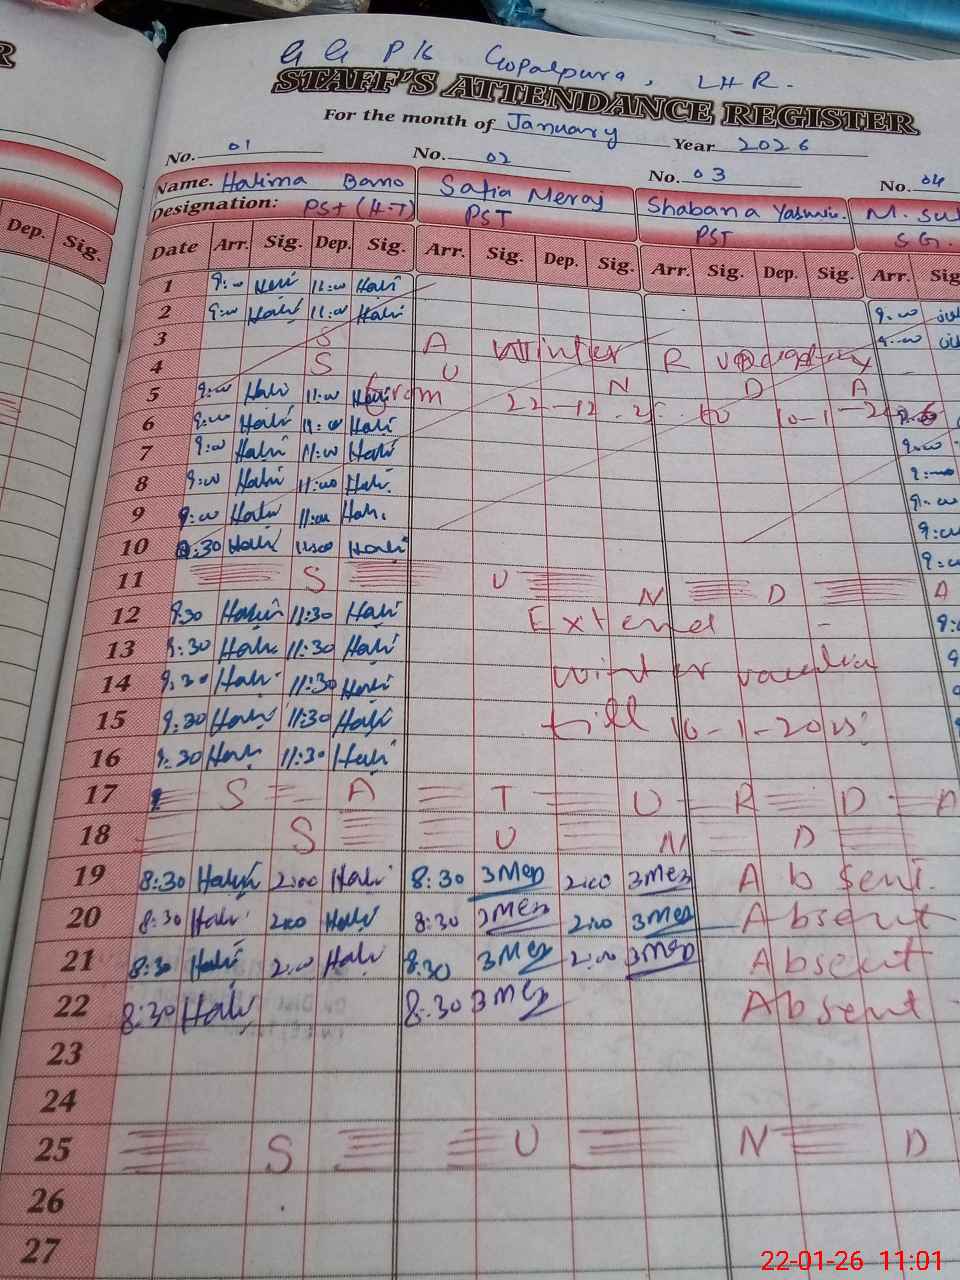 G G P/S Gopalpura, LHR.
STAFF'S ATTENDANCE REGISTER
For the month of January Year 2026
No. 01 No. 02 No. 03 No. 04
Name. Halima Bano Safia Meraj Shabana Yasmin. M. Sul
Designation: PST (H.T) PST PST S.G.
Dep. Sig. Date Arr. Sig. Dep. Sig. Arr. Sig. Dep. Sig. Arr. Sig. Dep. Sig. Arr. Sig
1 9:00 Hali 11:00 Hali
2 9:00 Hali 11:00 Hali 9:00
3 S A Winter R vacation 9:00
4 S U N D A
5 9:00 Hali 11:00 Hali from 22-12-25 to 10-1-2026
6 9:00 Hali 11:00 Hali
7 9:00 Hali 11:00 Hali 9:00
8 9:00 Hali 11:00 Hali 9:00
9 9:00 Hali 11:00 Hali 9:00
10 9:30 Hali 11:00 Hali 9:00
11 S U N D A
12 9:30 Hali 11:30 Hali Extend
13 9:30 Hali 11:30 Hali
14 9:30 Hali 11:30 Hali winter vacation
15 9:30 Hali 11:30 Hali till 16-1-20
16 9:30 Hali 11:30 Hali
17 S A T U R D A
18 S U N D
19 8:30 Hali 2:00 Hali 8:30 3Mez 2:00 3Mez Absent.
20 8:30 Hali 2:00 Hali 8:30 3Mez 2:00 3Mez Absent
21 8:30 Hali 2:00 Hali 8:30 3Mez 2:00 3Mez Absent
22 8:30 Hali 8:30 3Mez Absent
23
24
25 S U N D
26
27
22-01-26 11:01